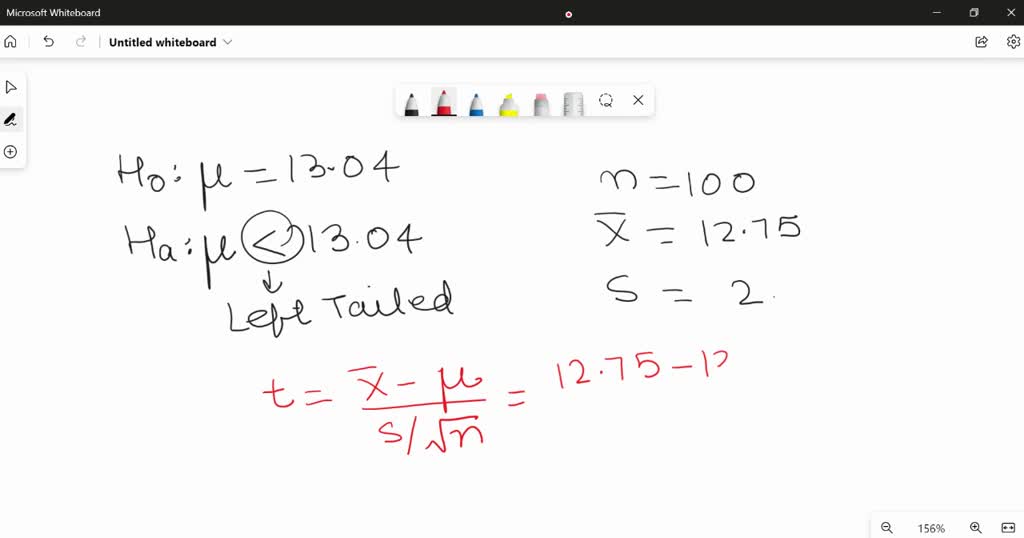 Microsoft Whiteboard
Untitled whiteboard
H₀: μ = 13.04
Ha: μ < 13.04
Left Tailed
n = 100
x̄ = 12.75
S = 2.
t = x̄ - μ / s/√n = 12.75 - 1
156%